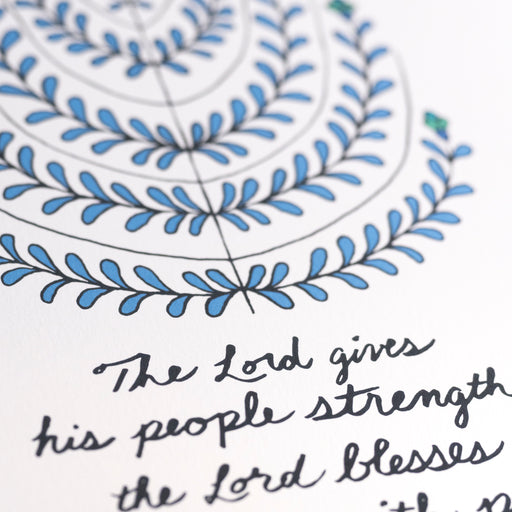 The Lord gives
his people strength
the Lord blesses